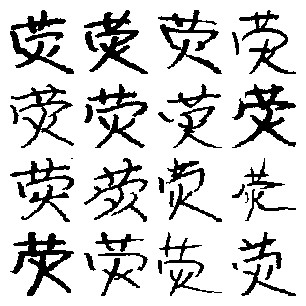 荧荧荧荧
荧荧荧荧
荧荧荧荧
荧荧荧荧